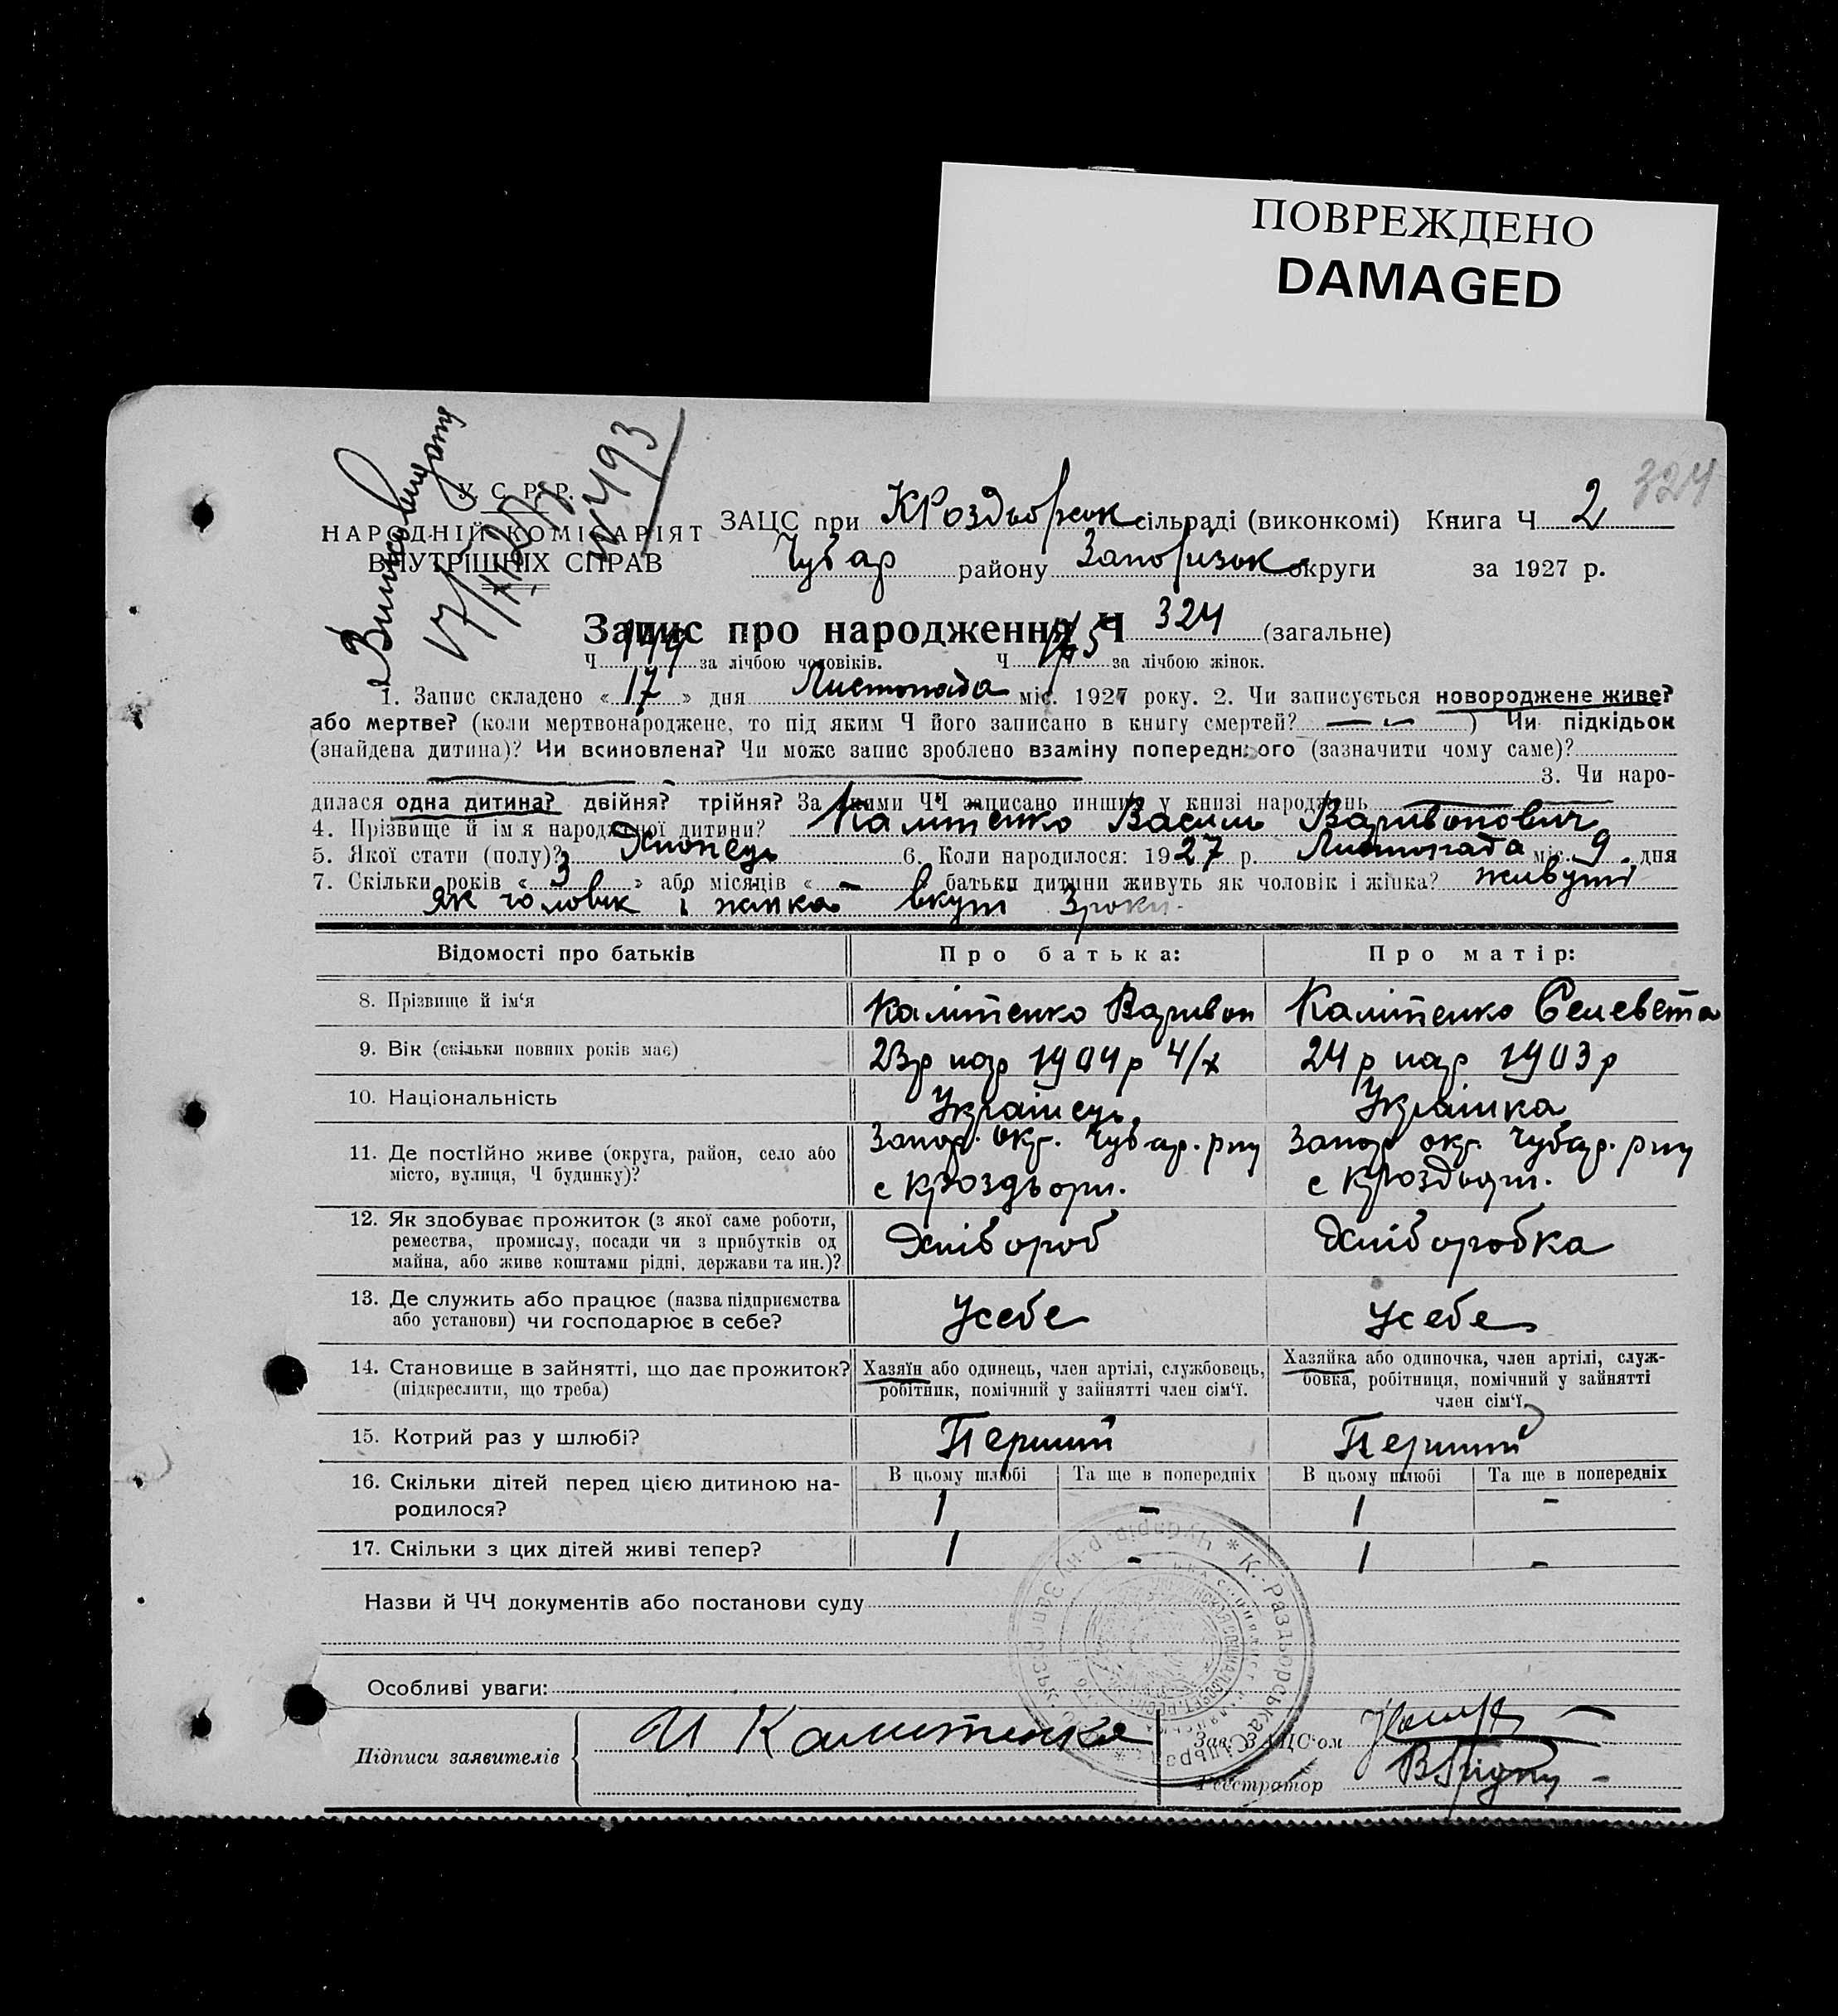 ПОВРЕЖДЕНО
DAMAGED
324
У. С. Р. Р.
НАРОДНІЙ КОМІСАРІЯТ
ВНУТРІШНІХ СПРАВ
N 493
ЗАЦС при КРоздьорськ сільраді (виконкомі) Книга Ч 2
Чубар району Запорізьк округи за 1927 р.
Запис про народження Ч 324 (загальне)
Ч за лічбою чоловіків. Ч за лічбою жінок.
1. Запис складено « 17 » дня Листопада міс. 1927 року. 2. Чи записується новороджене живе?
або мертве? (коли мертвонароджене, то під яким Ч його записано в книгу смертей? ) Чи підкідьок
(знайдена дитина)? Чи всиновлена? Чи може запис зроблено взаміну попереднього (зазначити чому саме)?
3. Чи наро-
дилася одна дитина? двійня? трійня? За якими ЧЧ записано инших у книзі народжень
4. Прізвище й ім'я народженої дитини? Калітенко Василь Варивонович
5. Якої стати (полу)? Хлопець 6. Коли народилося: 1927 р. Листопада міс. 9 дня
7. Скільки років « 3 » або місяців « - » батьки дитини живуть як чоловік і жінка? живуть
як чоловік і жінка вкупі 3 роки
Відомості про батьків Про батька: Про матір:
8. Прізвище й ім'я Калітенко Варивон Калітенко Єлевета
9. Вік (скільки повних років має) 23р нар 1904р 4/х 24р нар 1903р
10. Національність Українець Українка
11. Де постійно живе (округа, район, село або Запор. окр. Чубар. р-ну Запор окр. Чубар. р-ну
місто, вулиця, Ч будинку)? с Кроздьори. с Кроздьори.
12. Як здобуває прожиток (з якої саме роботи, Хлібороб Хліборобка
ремества, промислу, посади чи з прибутків од
майна, або живе коштами рідні, держави та ин.)?
13. Де служить або працює (назва підприємства Усебе Усебе
або установи) чи господарює в себе?
14. Становище в зайнятті, що дає прожиток? Хазяїн або одинець, член артілі, службовець, Хазяйка або одиночка, член артілі, служ-
(підкреслити, що треба) робітник, помічний у зайнятті член сім'ї. бовка, робітниця, помічний у зайнятті
член сім'ї
15. Котрий раз у шлюбі? Перший Перший
16. Скільки дітей перед цією дитиною на- В цьому шлюбі Та ще в попередніх В цьому шлюбі Та ще в попередніх
родилося? 1 - 1 -
17. Скільки з цих дітей живі тепер? 1 - 1 -
Назви й ЧЧ документів або постанови суду
Особливі уваги:
Підписи заявителів И Калитенко
Зав. ЗАЦС'ом
Реєстратор